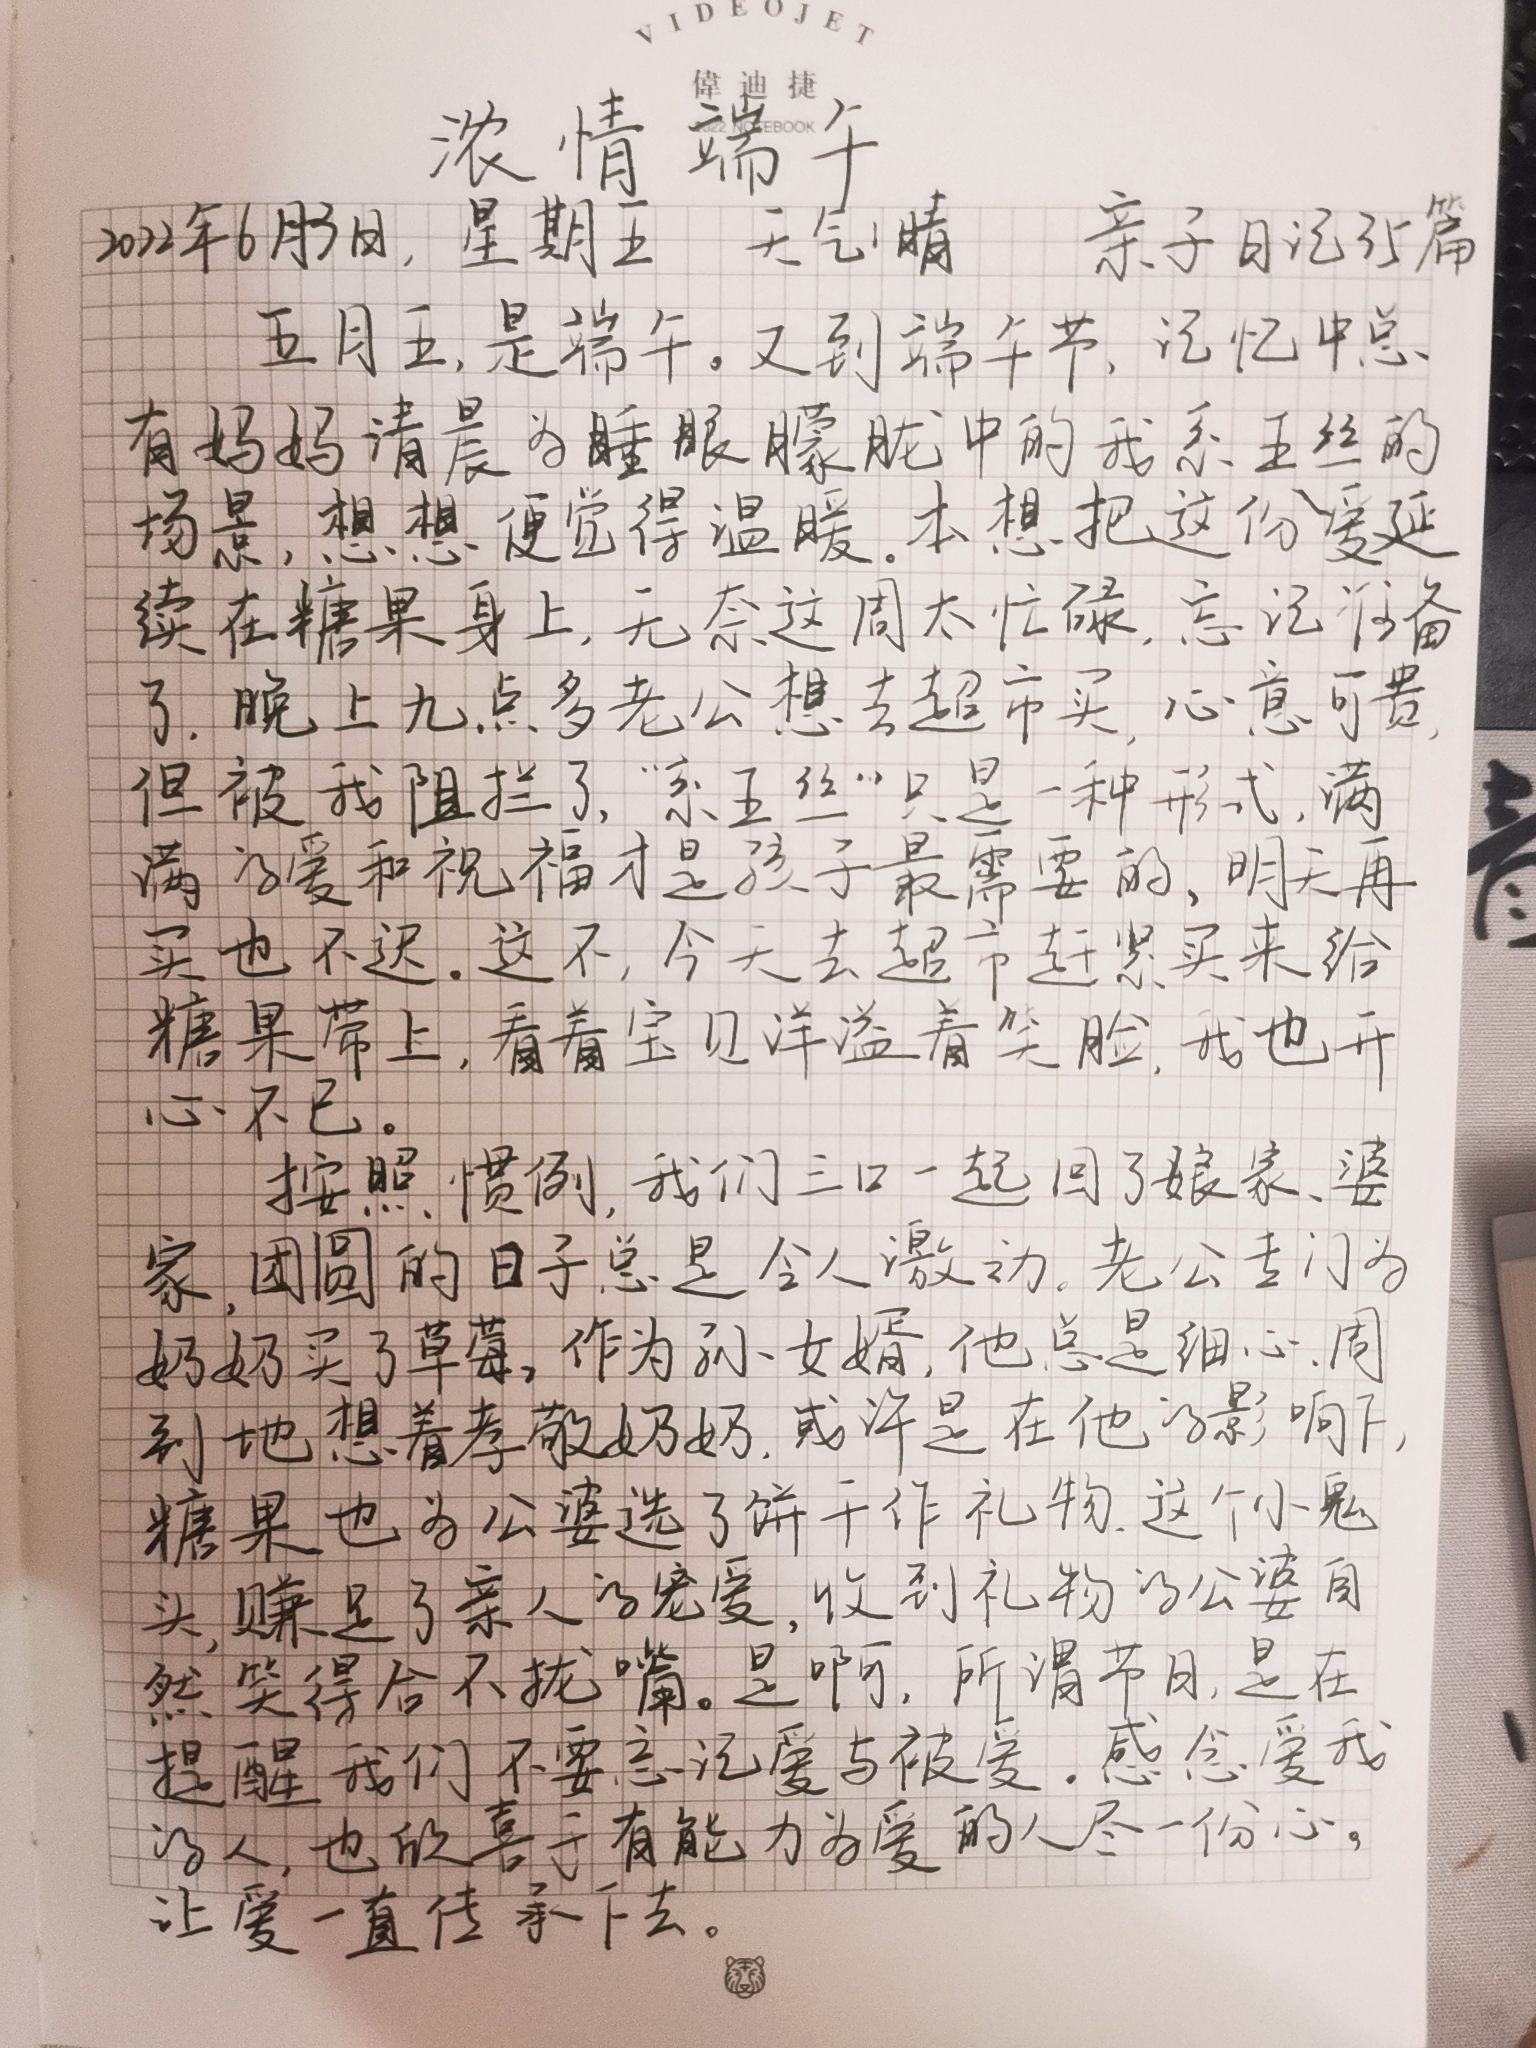 VIDEOJET
偉迪捷
2022 NOTEBOOK
浓情端午
2022年6月3日，星期五 天气晴 亲子日记35篇
五月五，是端午。又到端午节，记忆中总
有妈妈清晨为睡眼朦胧中的我系五丝的
场景，想想便觉得温暖。本想把这份爱延
续在糖果身上，无奈这周太忙碌，忘记准备
了，晚上九点多老公想去超市买，心意可贵，
但被我阻拦了，“系五丝”只是一种形式，满
满的爱和祝福才是孩子最需要的，明天再
买也不迟。这不，今天去超市赶紧买来给
糖果带上，看着宝贝洋溢着笑脸，我也开
心不已。
按照惯例，我们三口一起回了娘家、婆
家，团圆的日子总是令人激动。老公专门为
奶奶买了草莓，作为孙女婿，他总是细心、周
到地想着孝敬奶奶，或许是在他的影响下，
糖果也为公婆选了饼干作礼物，这个小鬼
头，赚足了亲人的宠爱，收到礼物的公婆自
然笑得合不拢嘴。是啊，所谓节日，是在
提醒我们不要忘记爱与被爱。感念爱我
的人，也欣喜于有能力为爱的人尽一份心。
让爱一直传承下去。